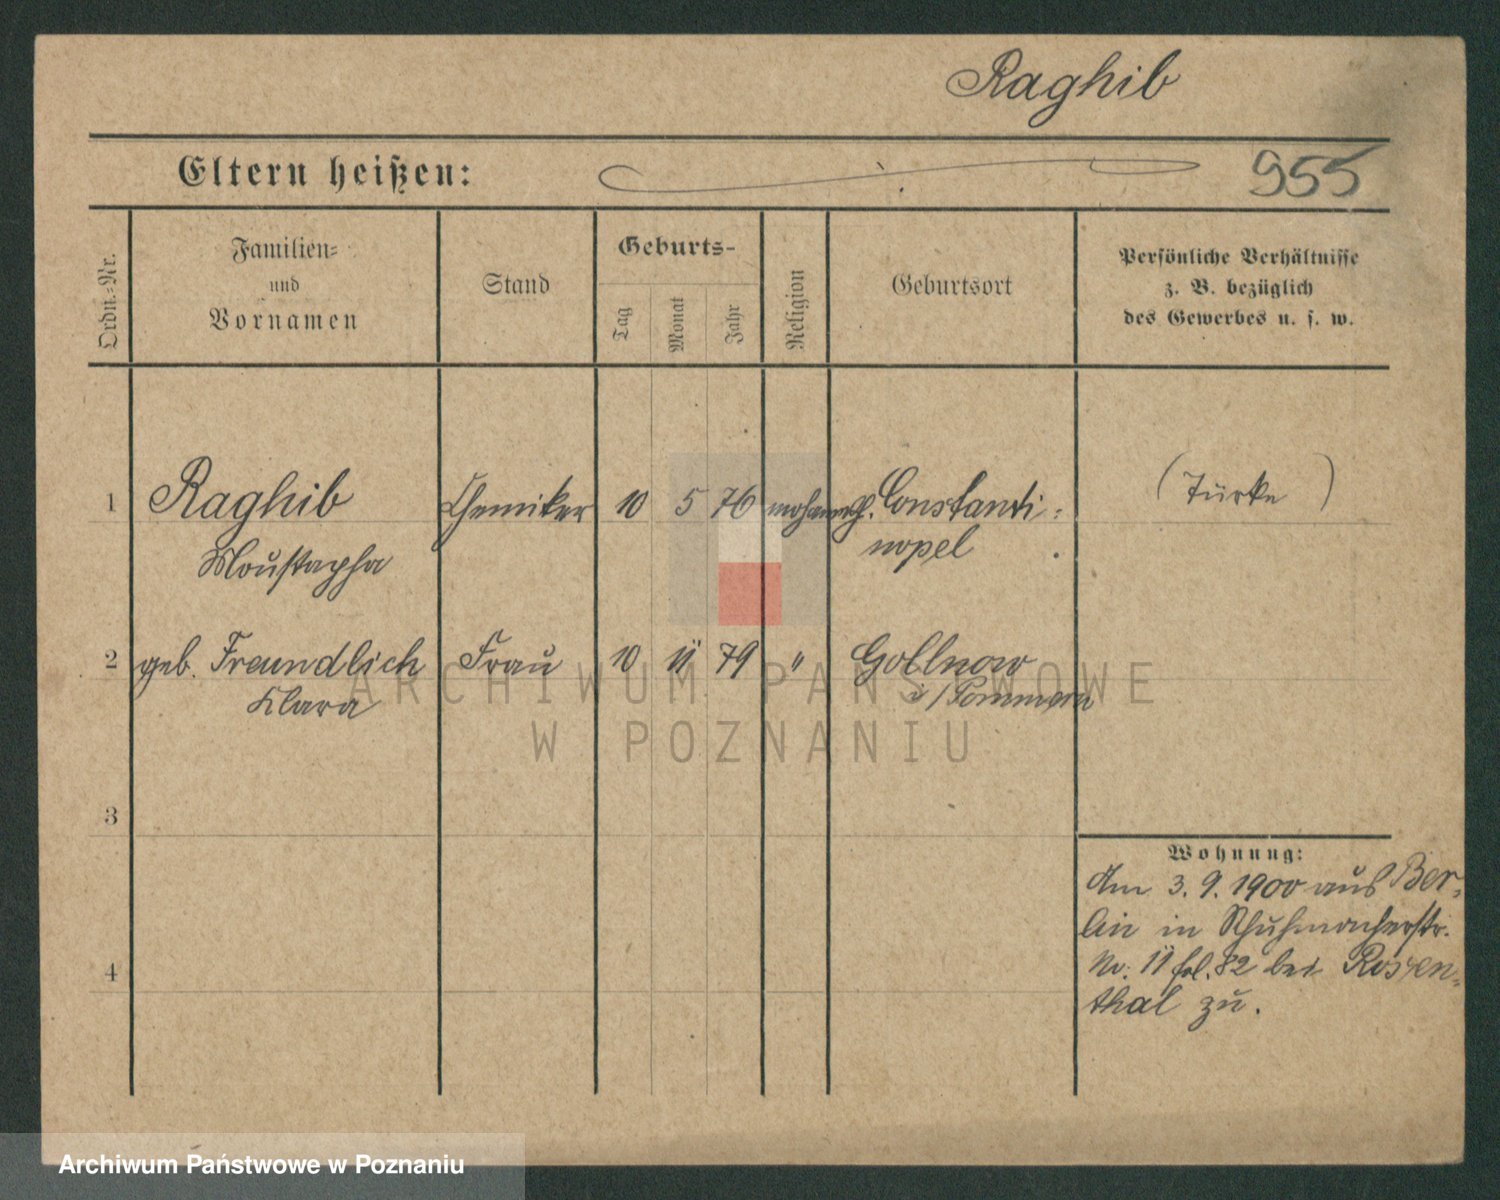 Raghib
Eltern heißen:
955
Ordn.-Nr.
Familien-
und
Vornamen
Stand
Geburts-
Tag
Monat
Jahr
Religion
Geburtsort
Persönliche Verhältnisse
z. B. bezüglich
des Gewerbes u. s. w.
1 Raghib Chemiker 10 5 76 Constanti-
Moustapha nopel
(Türke)
2 geb. Freundlich Frau 10 11 79 " Gollnow
Klara i/Pommern
3
4
Wohnung:
Am 3. 9. 1900 aus Ber-
lin in Schuhmacherstr.
No. 11 fol. 82 bei Rosen-
thal zu.
ARCHIWUM PAŃSTWOWE
W POZNANIU
Archiwum Państwowe w Poznaniu